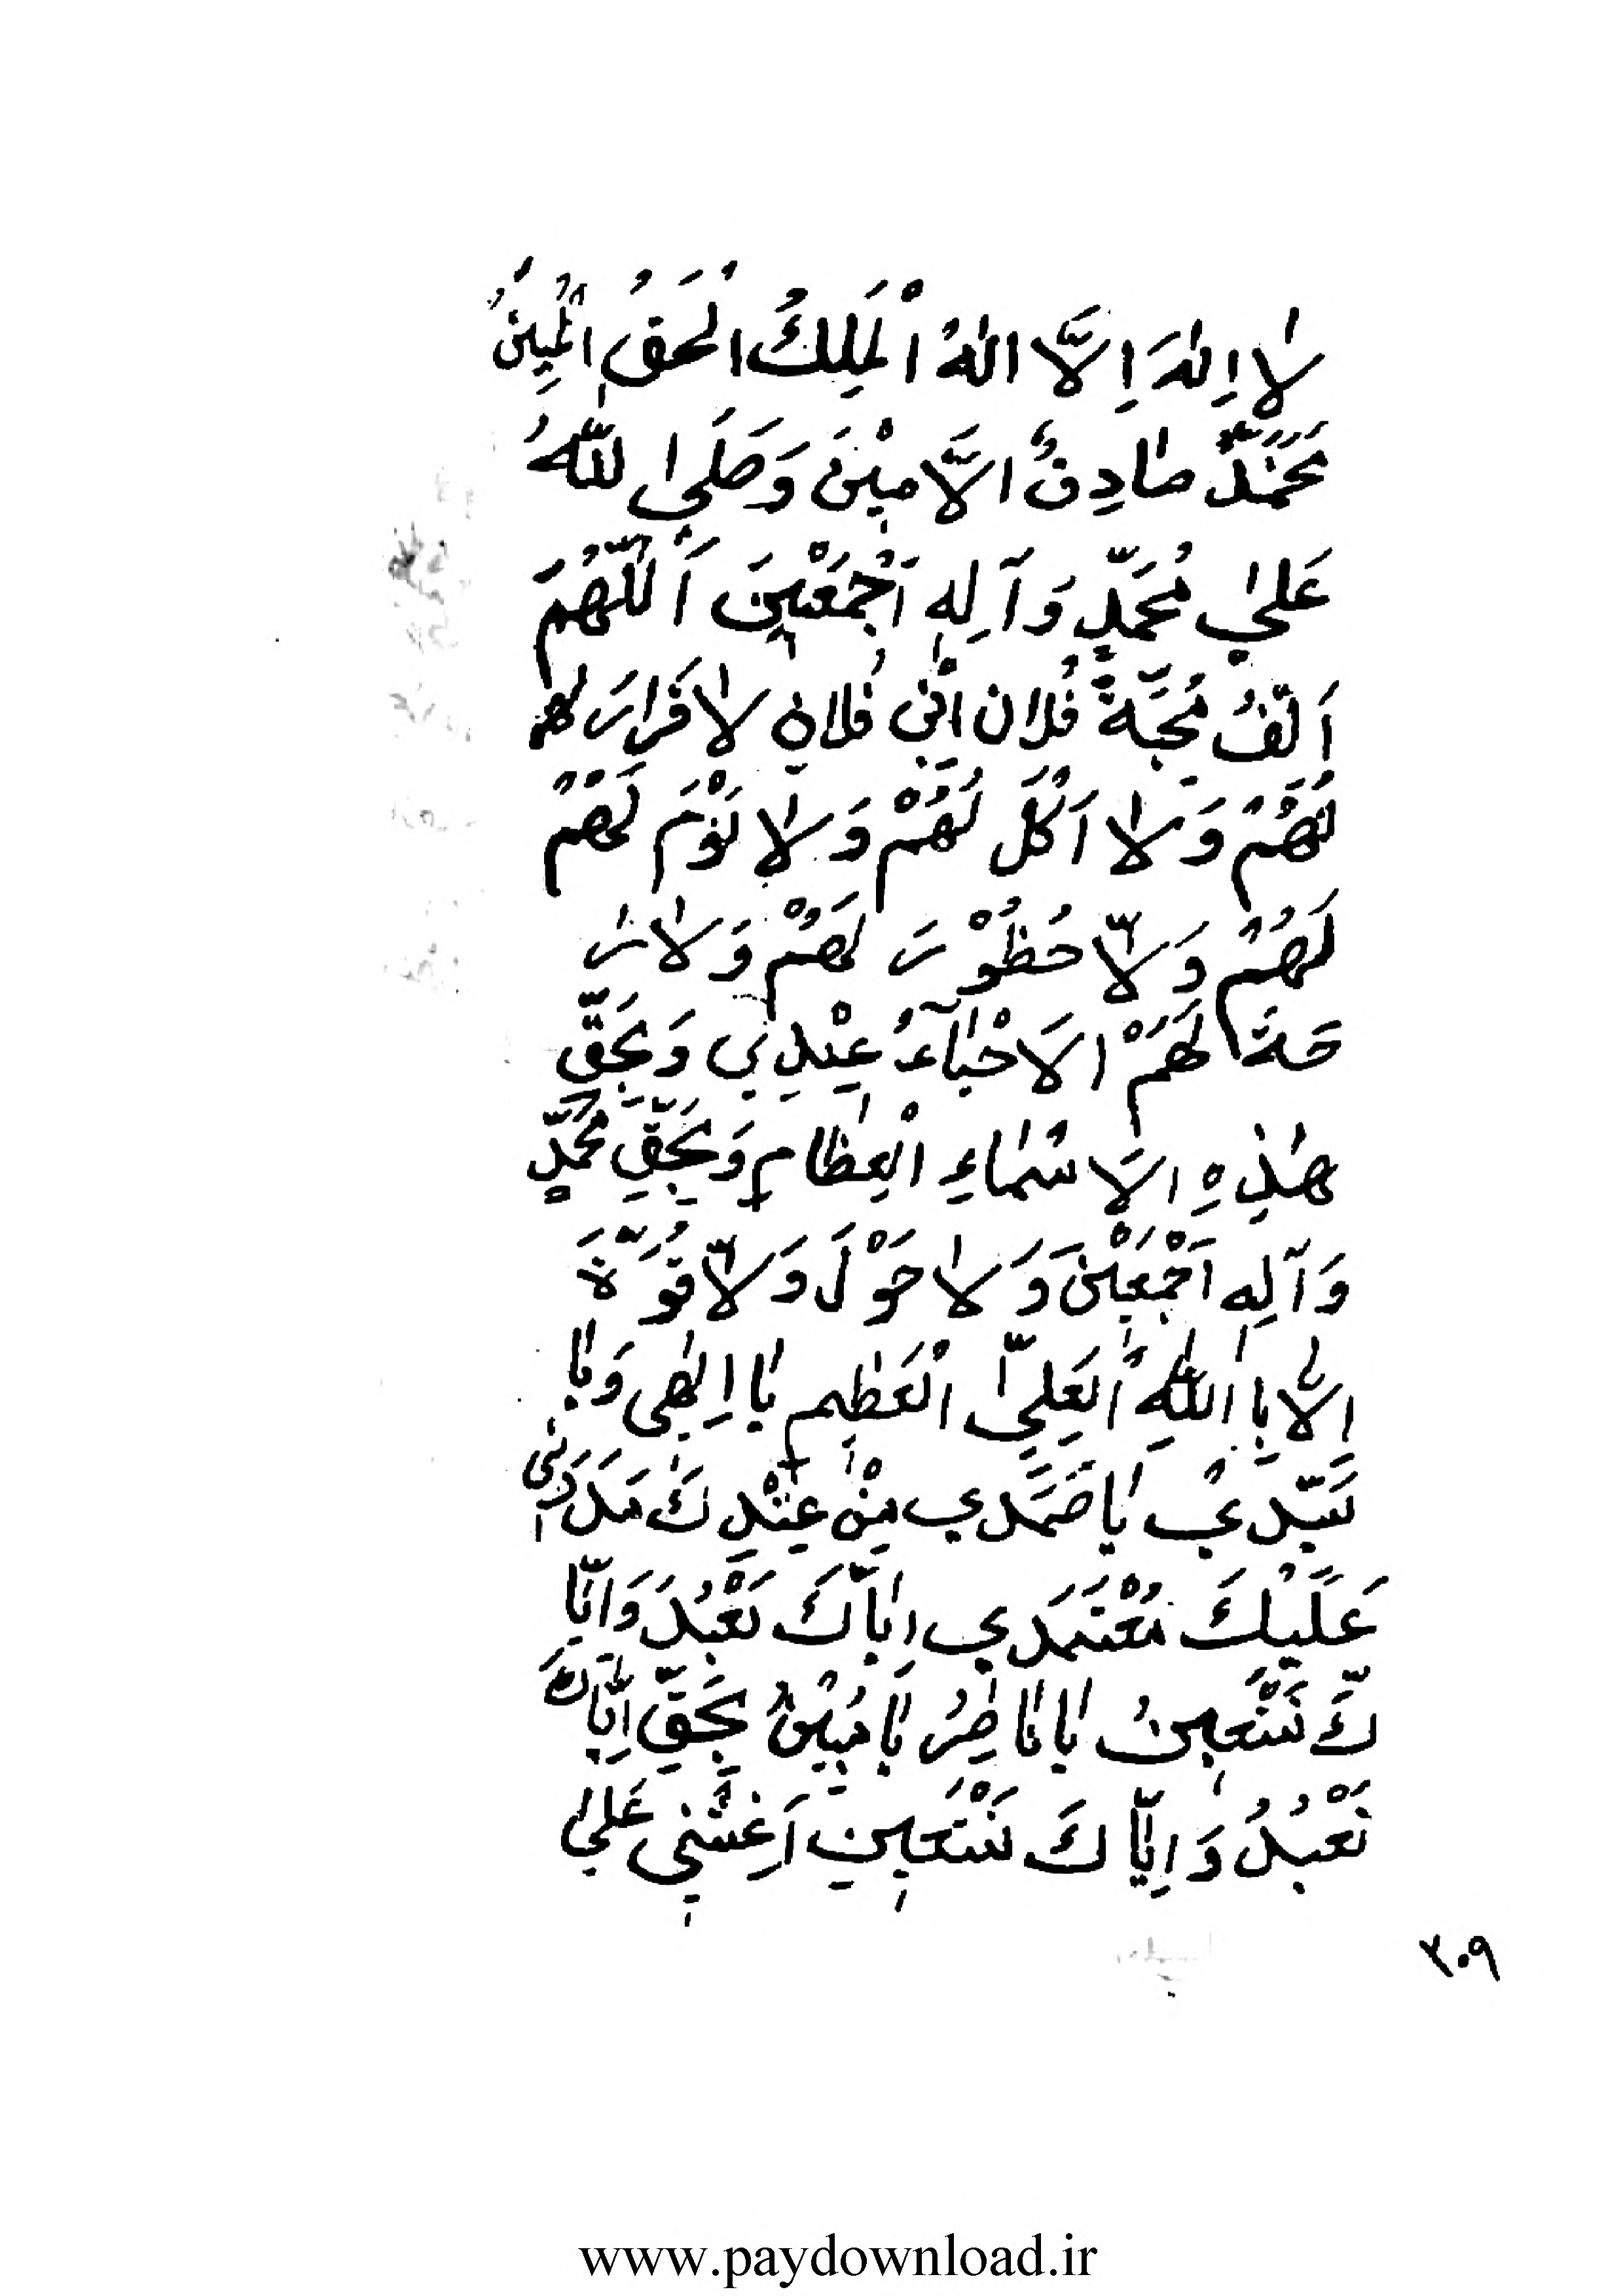 لا اِلٰهَ اِلَّا اللهُ الْمَلِكُ الْحَقُّ الْمُبِينُ
مُحَمَّدٌ صادِقُ الاَّمِيْنَ وَصَلَي اللّهُ
عَليٰ مُحَمَّدٍ وَآلِهِ اَجْمَعْينَ اَللّهُمَ
اَلّفُ مُحَبَّةً فُلان اِبْنِي فُلانِ لا قَرارَ لهم
لَهُمْ وَلا اَكْلَ لَهُمْ وَلا نَوْمَ لَهُمْ
لَهُمْ وَلاّ حُظُوْرَ لَهُمْ وَلا را
حَةَ لَهُمْ الاَحْبٰآءُ عِنْدِي وَبِحَقِّ
هٰذِهِ الاَسْمٰاءِ الْعِظامِ وَبِحَقِّ مُحَمَّدٍ
وَآلِهِ اَجْمَعِيْنَ وَلا حَوْلَ وَلاّ قُوَّةَ
اِلا بِا اللّهِ الْعَلِيِّ الْعَظِيمِ يا اِلٰهِي وَيا
سَيّدِيْ يا صَمَدي مِنْ عِنْدِكَ مَدَدَني
عَلَيْكَ مُعْتَمَدي اِيّاكَ نَعْبُدَ وَايّا
كَّ نَسْتَعِينُ يا ناظِرُ يا مُبِيْنُ بِحَقِّ اِيّاكَ
نَعْبُدُ وَاِيّاكَ نَسْتَعِينِ اَغِثْنِي عَليٰ
٣٠٩
www.paydownload.ir